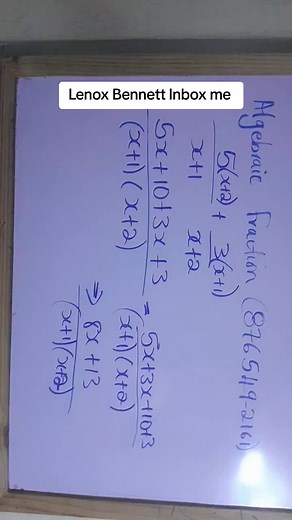 Lenox Bennett Inbox me
Algebraic fraction (876549-2161)
5(x+2) + 3(x+1)
x+1 x+2
5x+10+3x+3 = 5x+3x+10+3
(x+1)(x+2) (x+1)(x+2)
⇒ 8x+13
(x+1)(x+2)